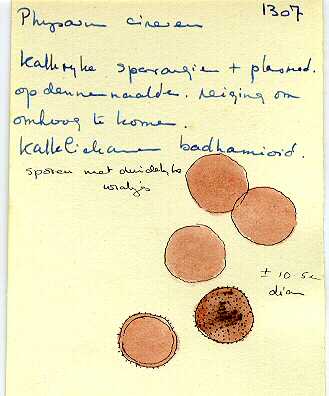 1307
Physarum cinereum
Kalkryke sporangien + plasmod.
op dennenaalde. neiging om
omhoog te komen.
Kalklichamen badhamioid.
sporen met duidelyke
wratjes
± 10.5 u
diam